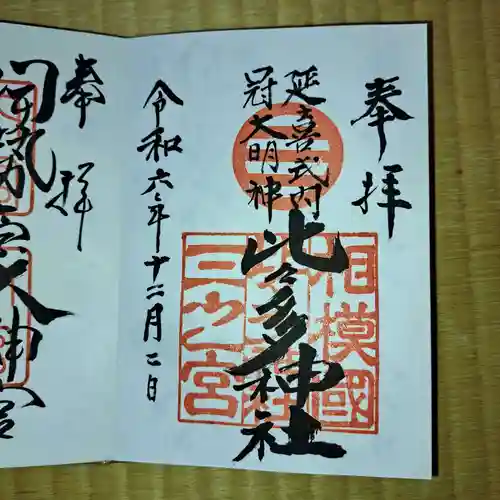 奉拝
延喜式内
冠大明神
比々多神社
相模國
三之宮
令和六年十二月二日
奉拝
伊勢原大神宮